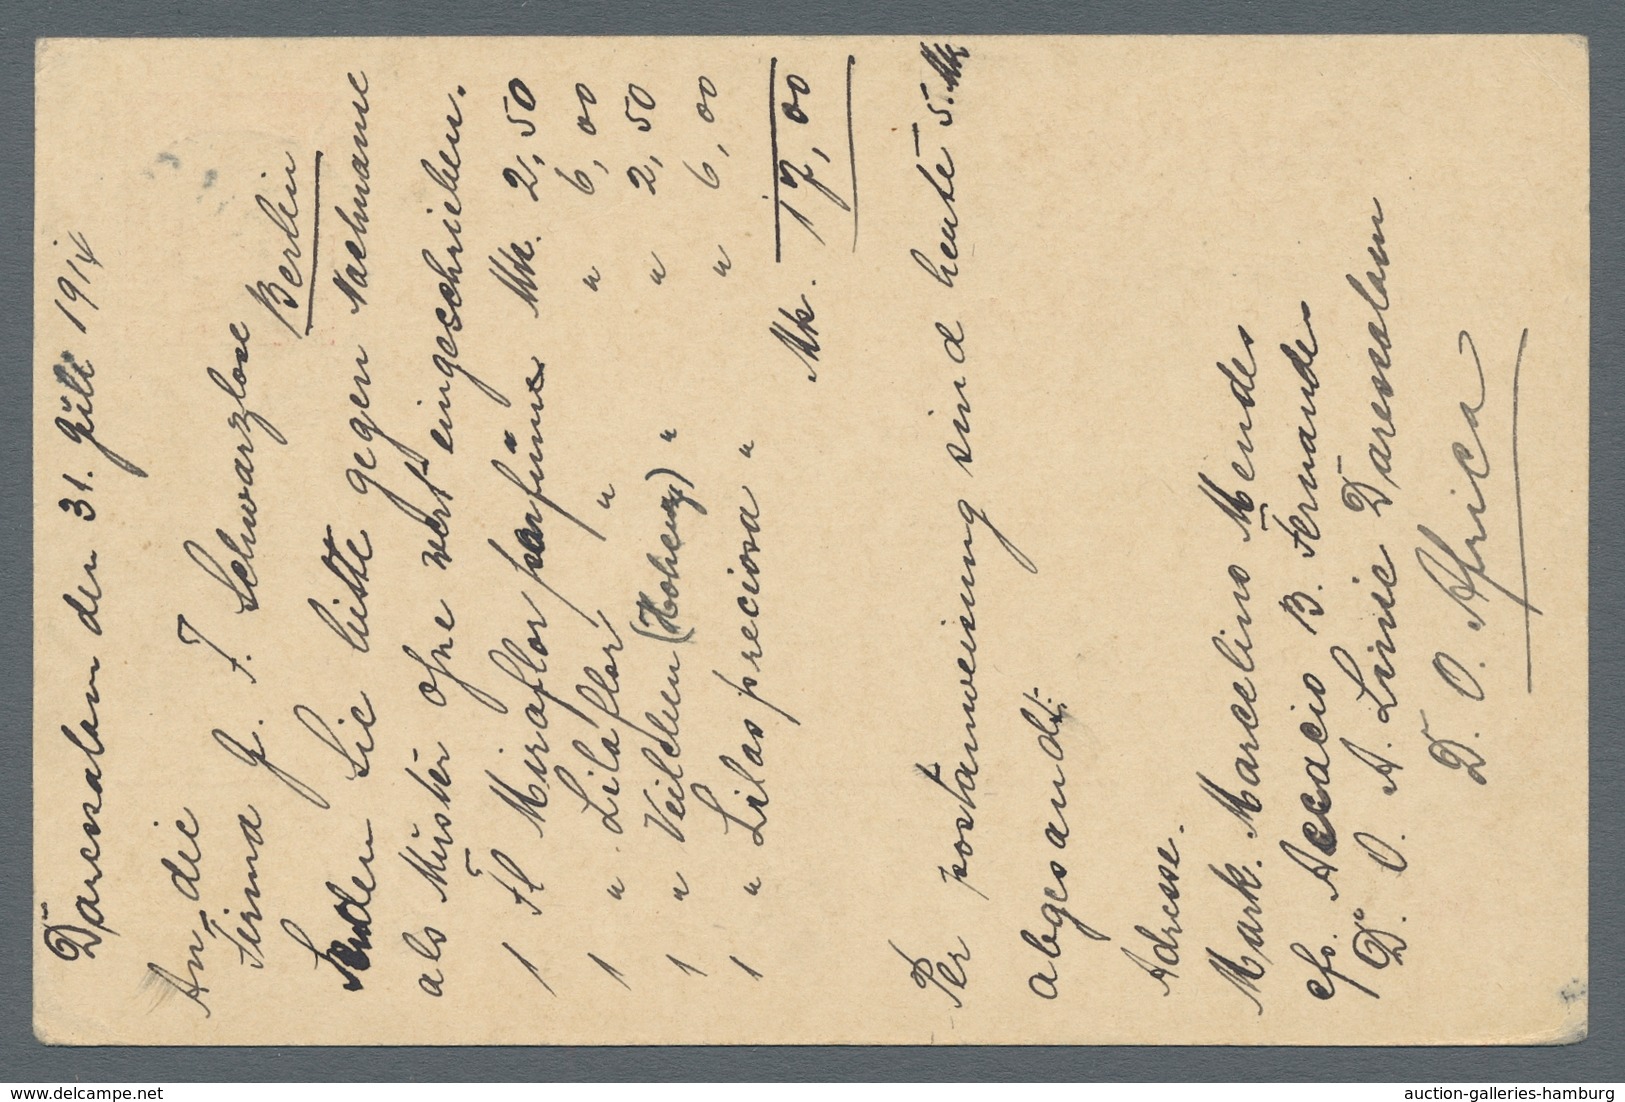 Daressalam den 31. Juli 1914
An die
Firma J. F. Schwarzlose
Berlin
Senden Sie bitte gegen Nachname
als Muster ohne wert eingeschrieben.
1 Fl Miraflor parfüme Mk. 2,50
1 " Lilaflor " " 6,00
1 " Veilchen (Hohenz) " " 2,50
1 " Lilas preciosa " " 6,00
Mk. 17,00
Per postanweisung sind heute 5.Mk
abgesandt.
Adresse.
Mark. Marcelino Mendes
c/o. Accacio B. Fernandes
D. O. A. Linie Daressalam
D. O. Africa
auction-galleries-hamburg